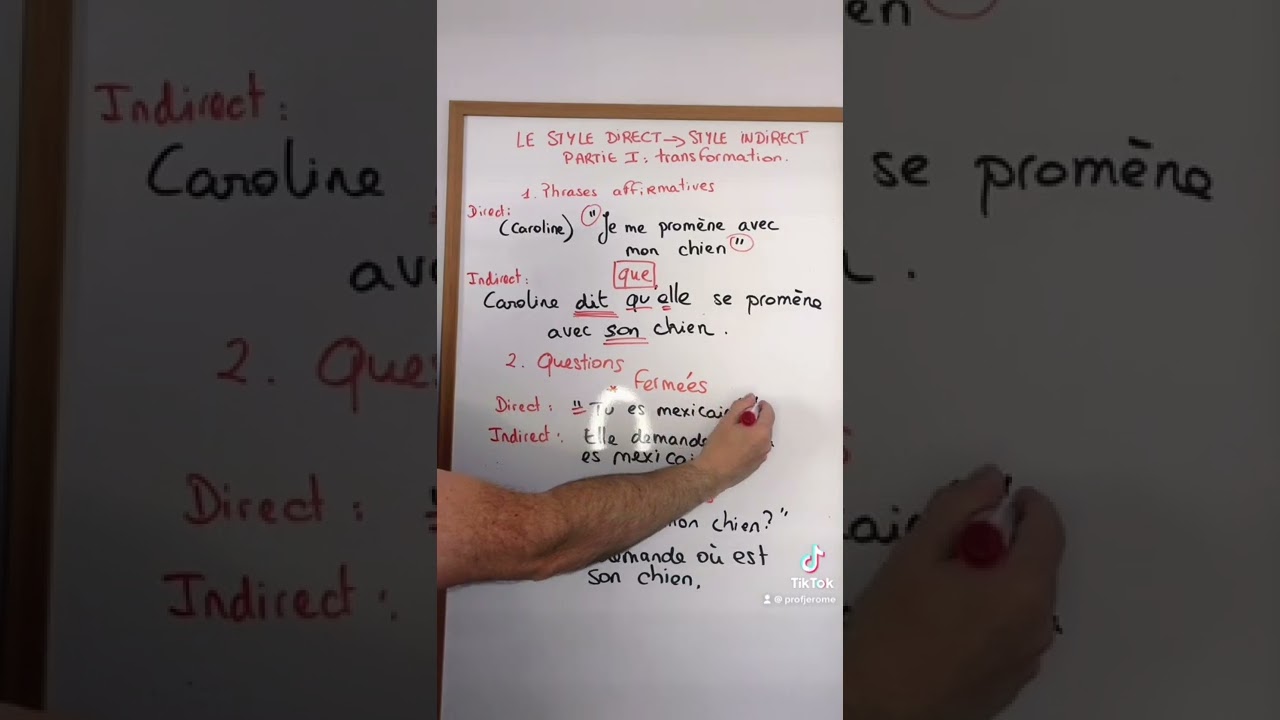 LE STYLE DIRECT → STYLE INDIRECT
PARTIE I : transformation.
1. Phrases affirmatives
Direct:
(Caroline) "Je me promène avec
mon chien"
Indirect:
que
Caroline dit qu'elle se promène
avec son chien.
2. Questions
* Fermées
Direct : "Tu es
Indirect : Elle demande
es
mon chien?"
où est
son chien.
TikTok
@profjerome
Indirect :
Caroline
se promène
2.
Direct :
Indirect :